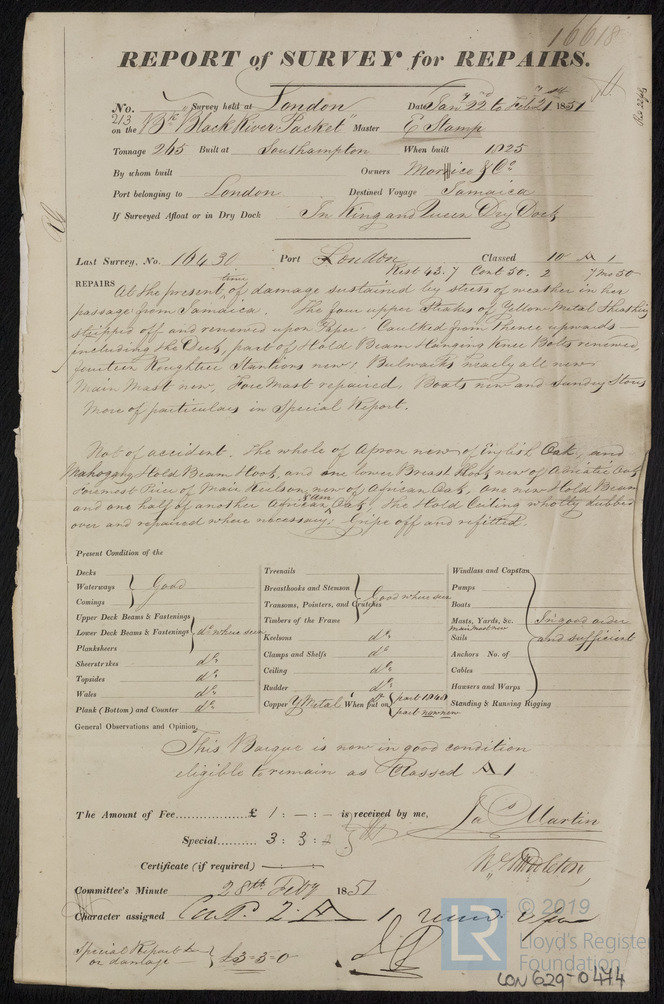 16618
REPORT of SURVEY for REPAIRS.
No. 213 Survey held at London Date Jany 22nd to Feby 21st 1851
on the Bk "Black River Packet" Master E Stamp
Tonnage 265 Built at Southampton When built 1825
By whom built Owners & Co
Port belonging to London Destined Voyage Jamaica
If Surveyed Afloat or in Dry Dock In King and Queen Dry Dock
Last Survey, No. 16430 Port London Classed 10 A 1
Rest 43.7 Cont 50. 2 7 Mo 50
REPAIRS At the present time of damage sustained by stress of weather in her
passage from Jamaica. The four upper Strakes of Yellow Metal Sheathing
stripped off and renewed upon Paper. Caulked from thence upwards—
including the Deck, part of Hold Beam Hanging Knee Bolts renewed,
fourteen Roughtree Stantions new, Bulwarks nearly all new
Main Mast new, Fore Mast repaired. Boats new and Sundry Stores
More of particulars in Special Report.
Not of accident. The whole of Apron new of English Oak, and
Mahogany Hold Beam Hook, and one lower Breast Hook new of Adriatic Oak
Foremost Piece of Main Keelson new of African Oak, one new Hold Beam
and one half of another Beam African Oak, the Hold Ceiling wholly dubbed
over and repaired where necessary; Gripe off and refitted.
Present Condition of the
Decks
Waterways Good
Comings
Upper Deck Beams & Fastenings
Lower Deck Beams & Fastenings do where seen
Planksheers
Sheerstrakes do
Topsides do
Wales do
Plank (Bottom) and Counter do
Treenails
Breasthooks and Stemson
Transoms, Pointers, and Crutches Good where seen
Timbers of the Frame
Keelsons do
Clamps and Shelfs do
Ceiling do
Rudder do
Copper Y Metal When put on part 1849
part now new
Windlass and Capstan
Pumps
Boats
Masts, Yards, &c. In good order
main mast new
Sails and sufficient
Anchors No. of
Cables
Hawsers and Warps
Standing & Running Rigging
General Observations and Opinion,
This Barque is now in good condition
eligible to remain as Classed A 1
The Amount of Fee £ 1 : — : — is received by me,
Special 3 : 3 : -
Jas Martin
Certificate (if required)
Middleton,
Committee's Minute 28th Feby 1851
Character assigned Cont. 2 A 1
Special Report
on damage £3=3=0
© 2019
LR
Lloyd's Register
Foundation
LON 629-0474